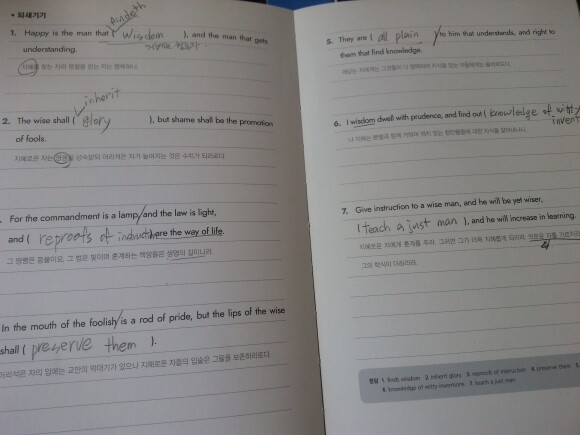 • 되새기기
findeth
1. Happy is the man that ( Wisdom ), and the man that gets
understanding.
지혜를 찾는 자와 명철을 얻는 자는 행복하나니
2. The wise shall ( inherit glory ), but shame shall be the promotion
of fools.
지혜로운 자는 영광을 상속받되 어리석은 자가 높여지는 것은 수치가 되리로다.
For the commandment is a lamp/and the law is light,
and ( reproofs of instruct are the way of life.
그 명령은 등불이요, 그 법은 빛이며 훈계하는 책망들은 생명의 길이니라.
In the mouth of the foolish/is a rod of pride, but the lips of the wise
shall ( preserve them ).
어리석은 자의 입에는 교만의 막대기가 있으나 지혜로운 자들의 입술은 그들을 보존하리로다.
5. They are ( all plain ) to him that understands, and right to
them that find knowledge.
6. I wisdom dwell with prudence, and find out ( knowledge of witty
invent
나 지혜는 명철과 함께 거하며
7. Give instruction to a wise man, and he will be yet wiser,
( teach a just man ), and he will increase in learning.
지혜로운 자에게 훈계를 주라. 그러면 그가 더욱 지혜롭게 되리라. 의로운 자를 가르치라.
그의 학식이 더하리라.
정답 1. finds wisdom 2. inherit glory 3. reproofs of instruction 4. preserve them 5.
6. knowledge of witty inventions 7. teach a just man